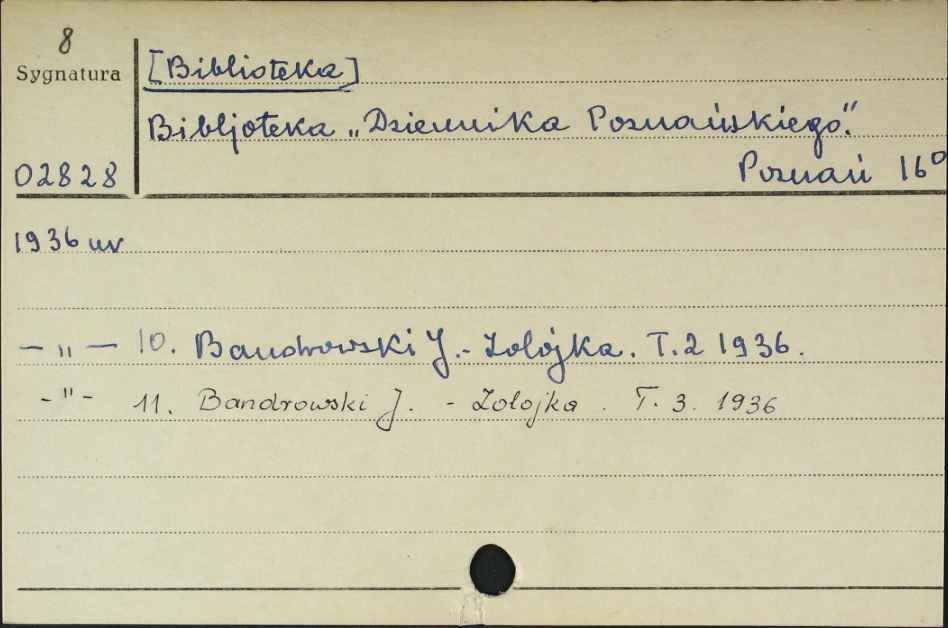 8
Sygnatura
[Biblioteka]
Bibljoteka „Dziennika Poznańskiego."
02828
Poznań 16°
1936 uv
— „ — 10. Bandrowski J. - Zolójka. T. 2 1936.
- " - 11. Bandrowski J. - Zolojka. T. 3. 1936